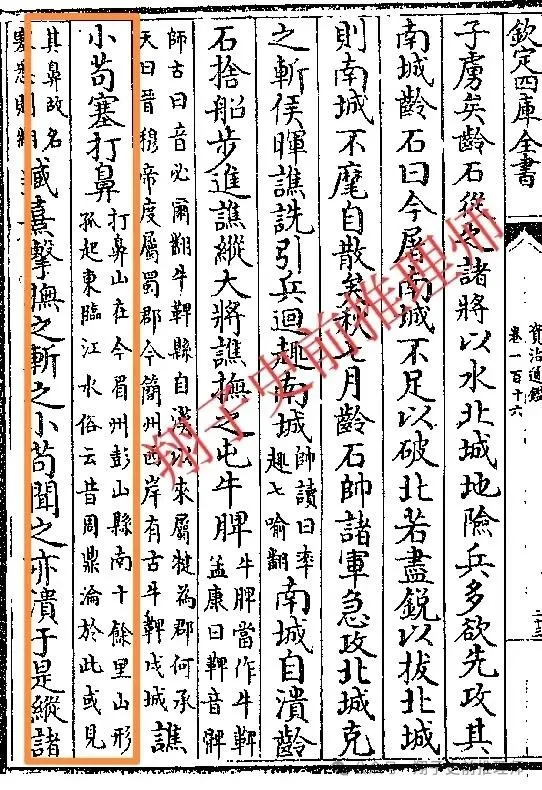 欽定四庫全書
資治通鑑
卷一百十六
子虜矣齡石從之諸將以水北城地險兵多欲先攻其
南城齡石曰今屠南城不足以破北若盡銳以拔北城
則南城不麾自散矣秋七月齡石帥諸軍急攻北城克
之斬侯暉譙詵引兵迴趣南城
帥讀曰率
趣七喻翻
南城自潰齡
石捨船步進譙縱大將譙撫之屯牛脾
牛脾當作牛鞞
孟康曰鞞音髀
師古曰音必爾翻牛鞞縣自漢以來屬犍為郡何承
天曰晉穆帝度屬蜀郡今簡州西岸有古牛鞞戍城
譙
小苟塞打鼻
打鼻山在今眉州彭山縣南十餘里山形
孤起東臨江水俗云昔周鼎淪於此或見
其鼻故名
塞悉則翻
臧熹擊撫之斬之小苟聞之亦潰于是縱諸
翔子史前推理师
翔子史前推理师